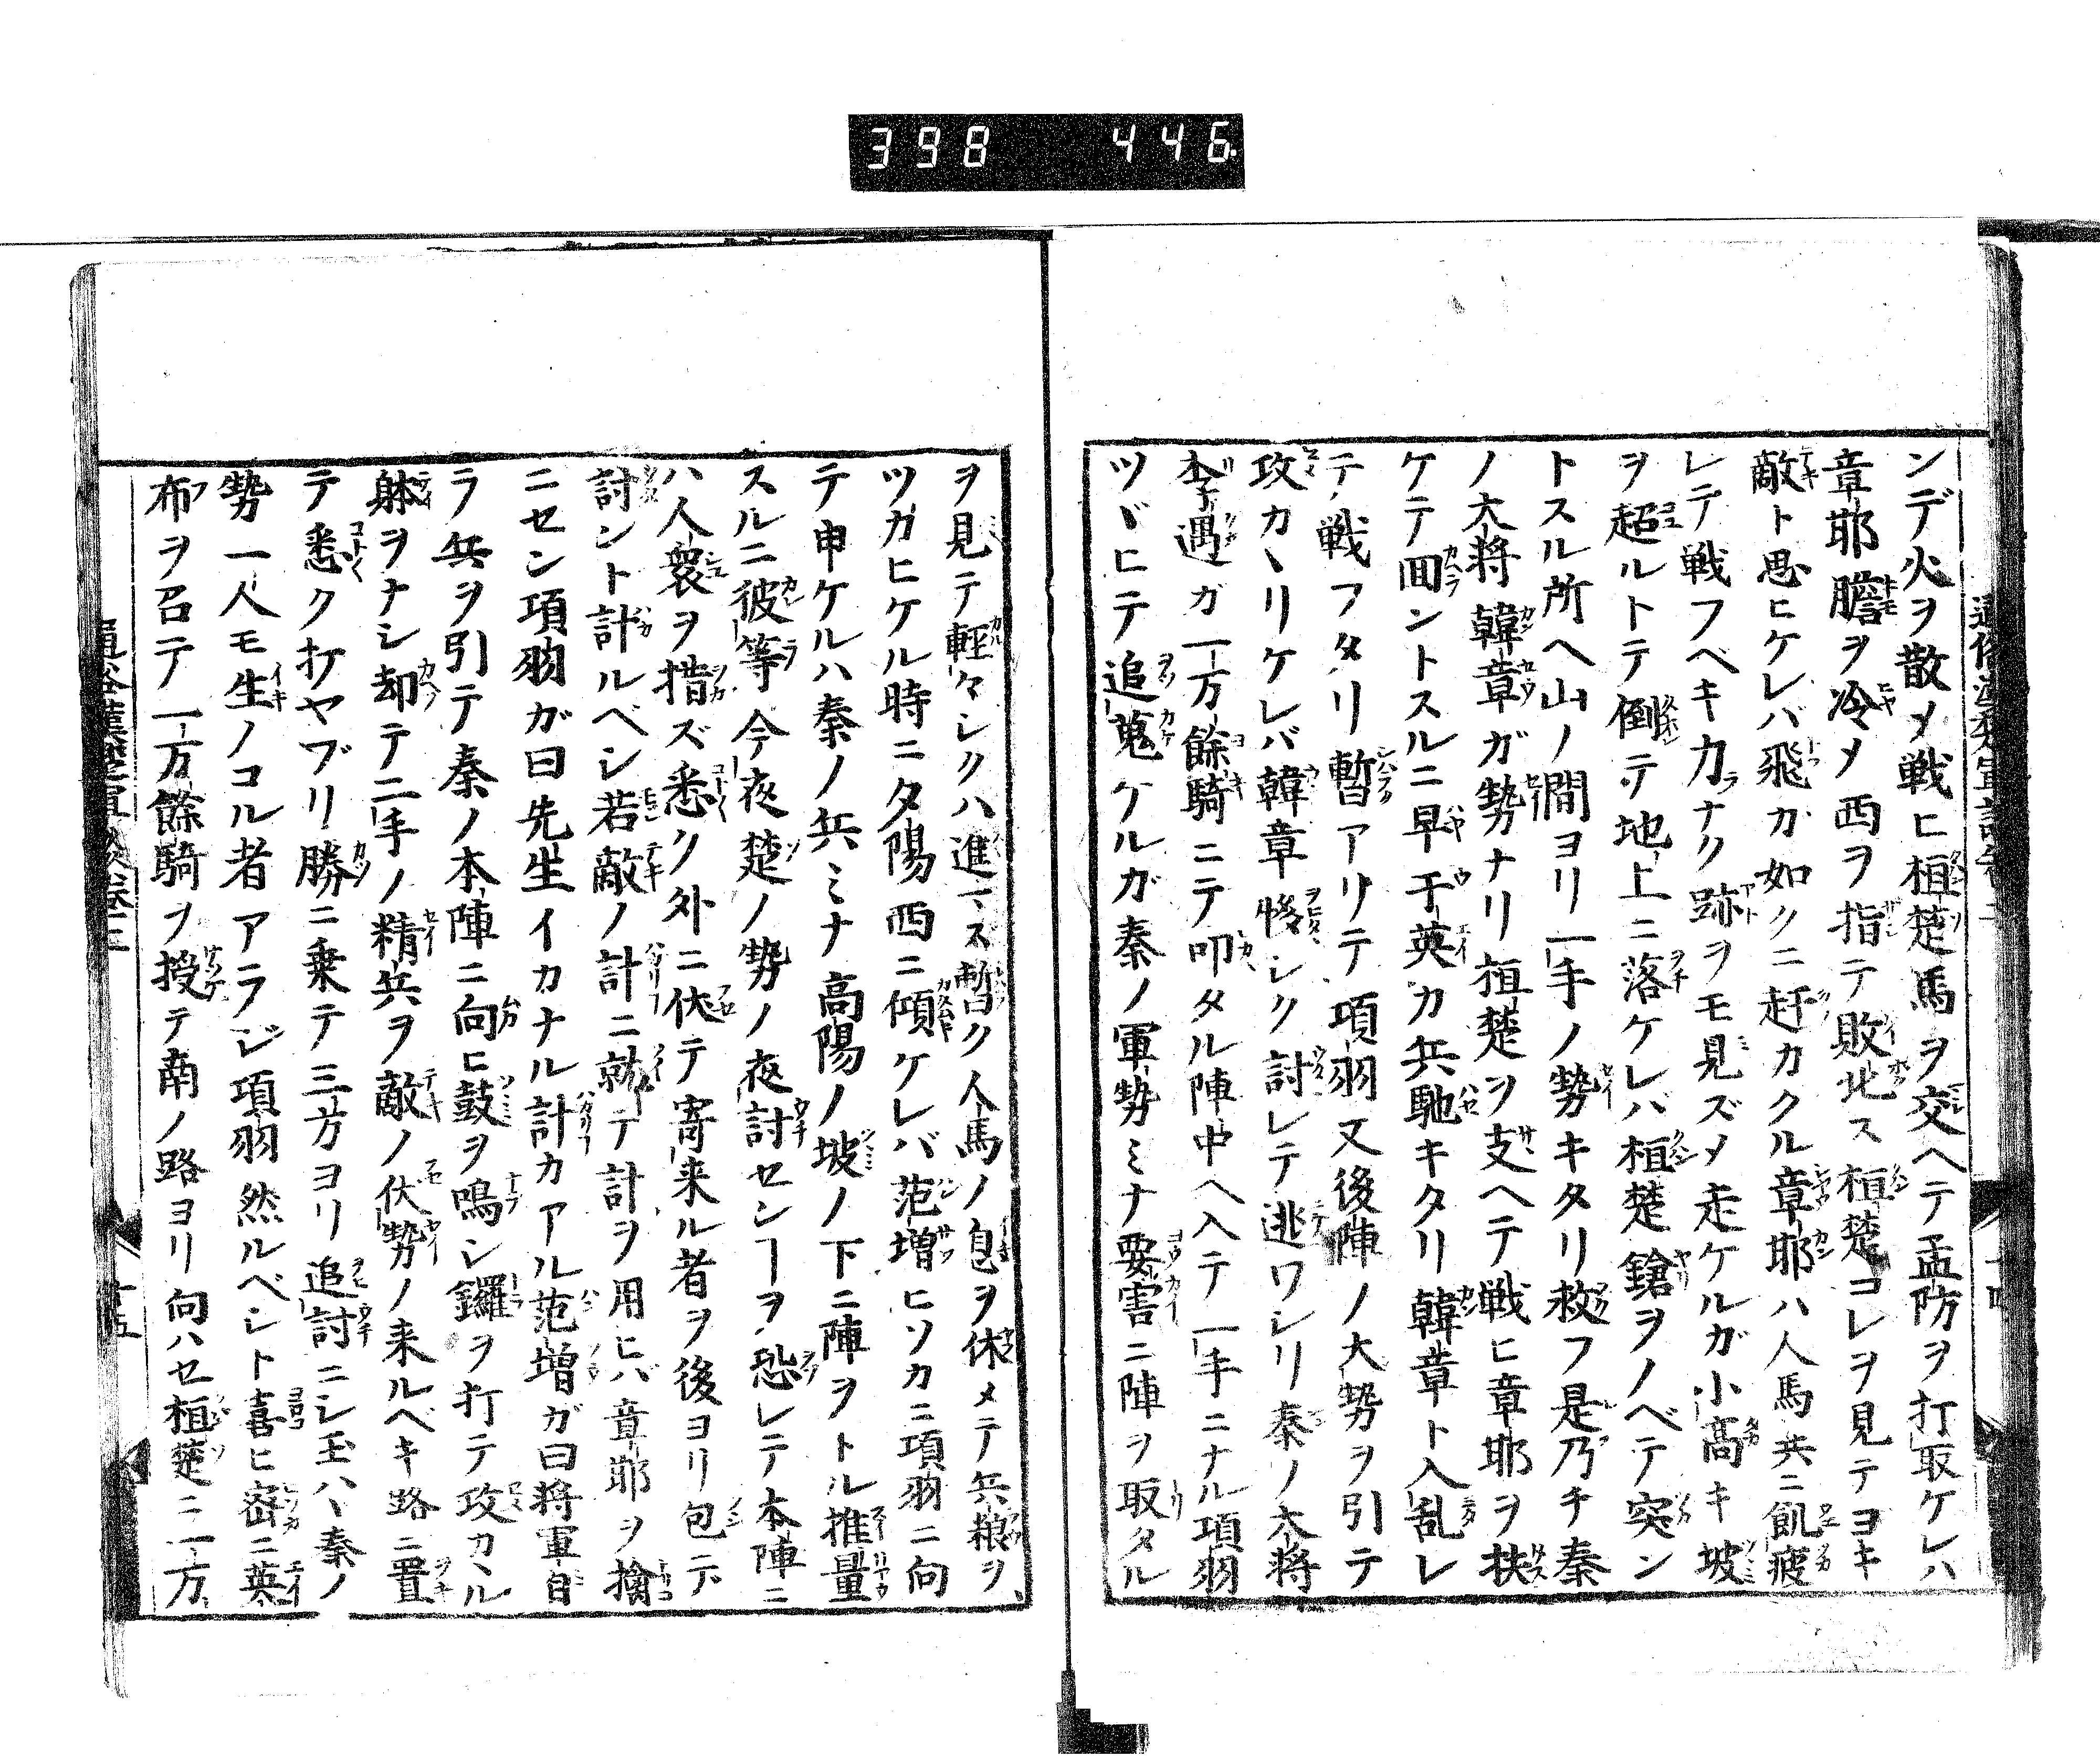 398 446
ンデ火ヲ散メ戦ヒ桓楚馬ヲ交ヘテ孟防ヲ打取ケレハ
章耶膽ヲ冷メ西ヲ指テ敗北ス桓楚コレヲ見テヨキ
敵ト思ヒケレバ飛カ如クニ赶カクル章耶ハ人馬共ニ飢疲
レテ戦フベキ力ラナク跡ヲモ見ズメ走ケルガ小高キ坡
ヲ超ルトテ倒テ地上ニ落ケレバ桓楚鎗ヲノベテ突ン
トスル所ヘ山ノ間ヨリ一手ノ勢キタリ救フ是乃チ秦
ノ大将韓章ガ勢ナリ桓楚ヲ支ヘテ戦ヒ章耶ヲ扶
ケテ囬ントスルニ早于英カ兵馳キタリ韓章ト入乱レ
テ戦フタリ暫アリテ項羽又後陣ノ大勢ヲ引テ
攻カヽリケレバ韓章惨シク討レテ逃ワシリ秦ノ大将
李遇ガ一万餘騎ニテ叩タル陣中ヘ入テ一手ニナル項羽
ツヾヒテ追蒐ケルガ秦ノ軍勢ミナ要害ニ陣ヲ取タル
ヲ見テ軽々シクハ進マス暫ク人馬ノ息ヲ休メテ兵粮ヲ
ツカヒケル時ニ夕陽西ニ傾ケレバ范増ヒソカニ項羽ニ向
テ申ケルハ秦ノ兵ミナ高陽ノ坡ノ下ニ陣ヲトル推量
スルニ彼等今夜楚ノ勢ノ夜討センヿヲ恐レテ本陣ニ
ハ人衆ヲ措ズ悉ク外ニ伏テ寄来ル者ヲ後ヨリ包テ
討ント計ルベシ若敵ノ計ニ就テ計ヲ用ヒバ章耶ヲ擒
ニセン項羽ガ曰先生イカナル計カアル范増ガ曰将軍自
ラ兵ヲ引テ秦ノ本陣ニ向ヒ鼓ヲ鳴シ鑼ヲ打テ攻カヽル
躰ヲナシ却テ二手ノ精兵ヲ敵ノ伏勢ノ来ルベキ路ニ置
テ悉ク打ヤブリ勝ニ乗テ三方ヨリ追討ニシ玉ハヽ秦ノ
勢一人モ生ノコル者アラジ項羽然ルベシト喜ヒ密ニ英
布ヲ召テ一万餘騎ヲ授テ南ノ路ヨリ向ハセ桓楚ニ一万